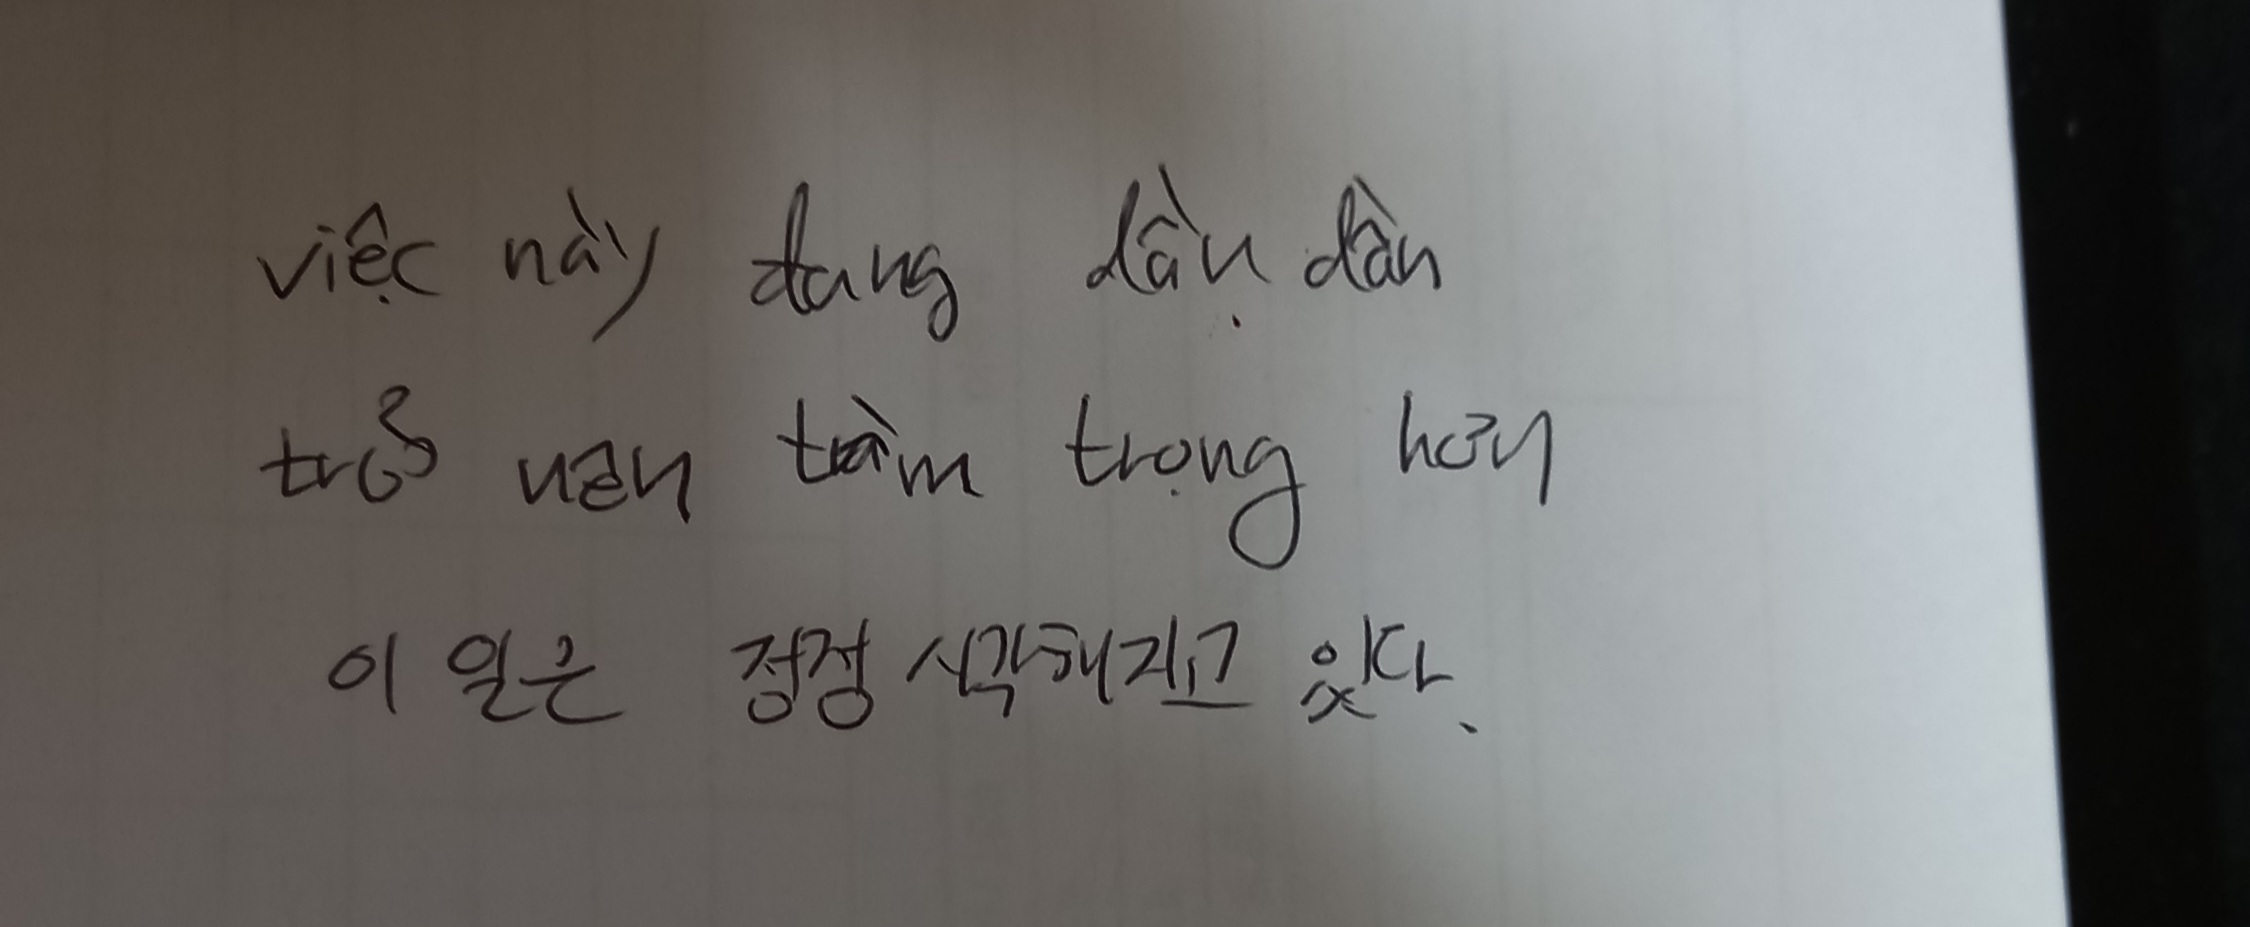 việc này đang dần dần
trở nên trầm trọng hơn
이 일은 정정 시각해지고 있다.